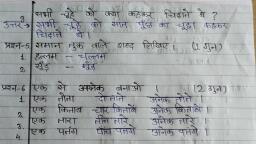 सभी चूहे को क्या कहकर चिढ़ाते थे ?
उत्तर→ सभी चूहे को सात पूँछ का चूहा कहकर
चिढ़ाते थे ।
प्रश्न-5 समान तुक वाले शब्द लिखिए । (1 गुन)
1
2 पूँछ - मूँछ
प्रश्न-6 एक से अनेक बनाओ । (2 गुन)
1. एक तोता दो तोते अनेक तोते ।
2. एक किताब चार किताबें अनेक किताबें ।
3. एक तारा तीन तारे अनेक तारे ।
4. एक पतंग पाँच पतंगें अनेक पतंगें ।